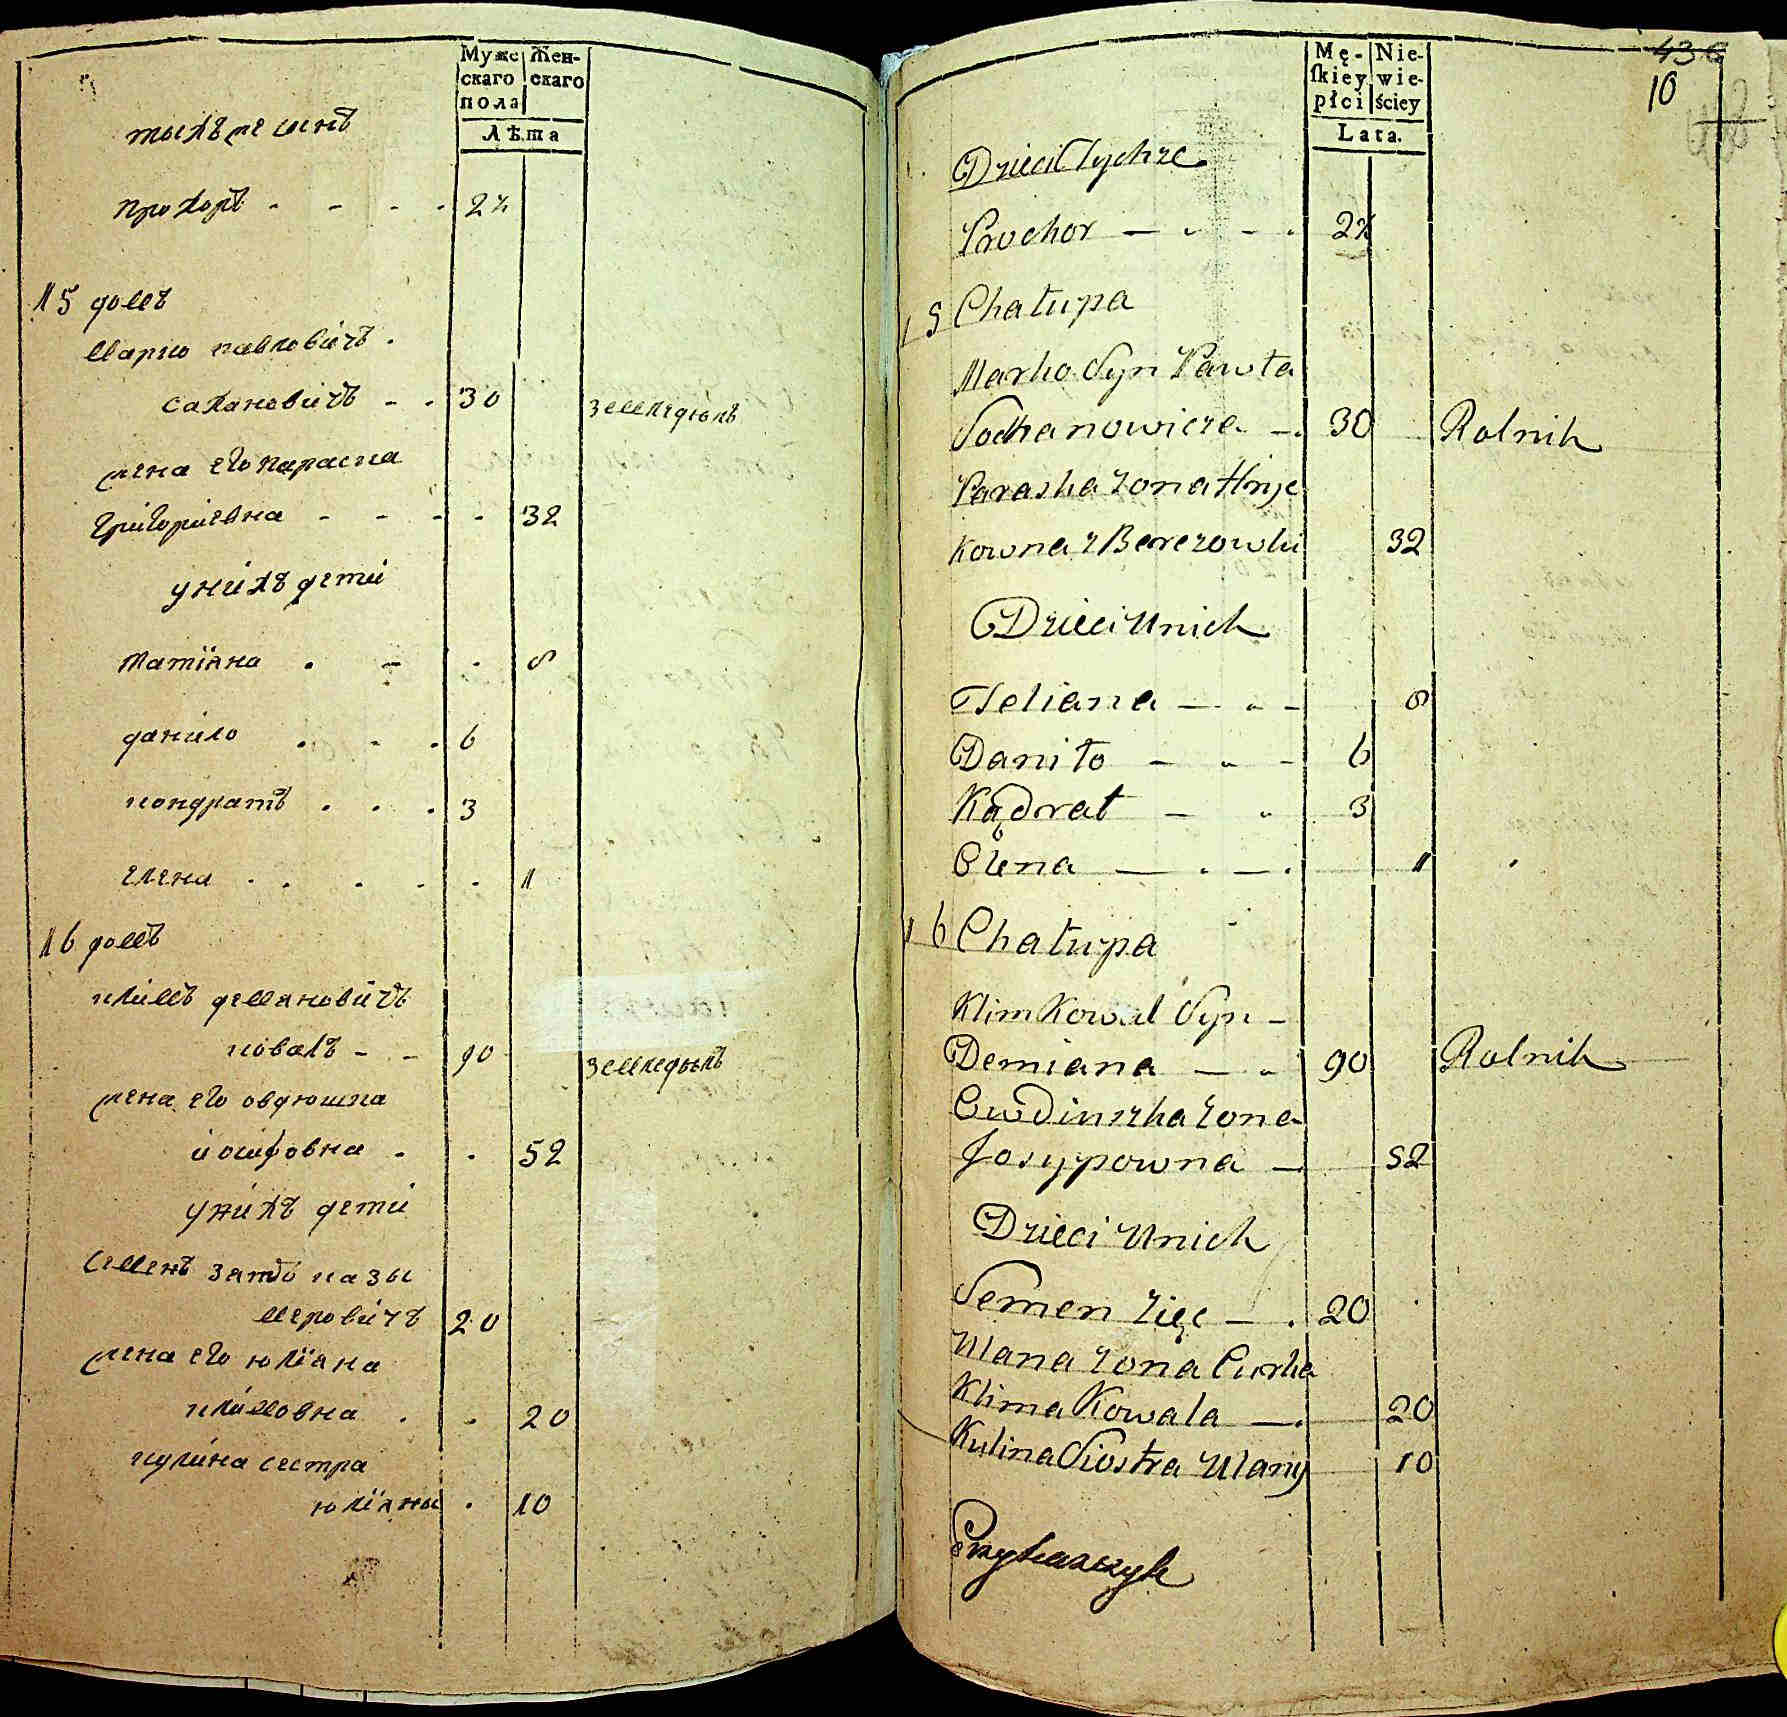 Мужс Жен-
скаго скаго
пола
Лѣта
тыхъ же сынъ
прохоръ - - - - 2½
15 домъ
Марко павловичъ .
сахановичъ - - 30 земледѣлъ
жена его параска
григориевна - - - - 32
у нихъ дети
татiяна . - - 8
данило . - . 6
кондратъ . . . 3
елена . . . . . 1
16 домъ
климъ демяновичъ
коваль - - 90 земледѣлъ
жена его овдюшка
йосифовна . . 52
у нихъ дети
Семенъ зять казы
меровичъ 20
жена его юлiяна
климовна . . 20
кулина сестра
юлiяны . 10
436
10
Mę- Nie-
ſkiey wie-
płci ściey
Lata.
Dzieci Tychże
Prochor 2½
15 Chałupa
Marko Syn Pawła
Sochanowicza 30 Rolnik
Paraska żona Hryc
kowna z Berezowki 32
Dzieci u nich
Tetiana 8
Daniło 6
Kądrat 3
Olena 1
16 Chałupa
Klim Kowal Syn
Demiana 90 Rolnik
Owdiuszka żona
Josypowna 52
Dzieci u nich
Semen zięć 20
Ulana żona Curka
Klima Kowala 20
Kulina Siostra Ulany 10